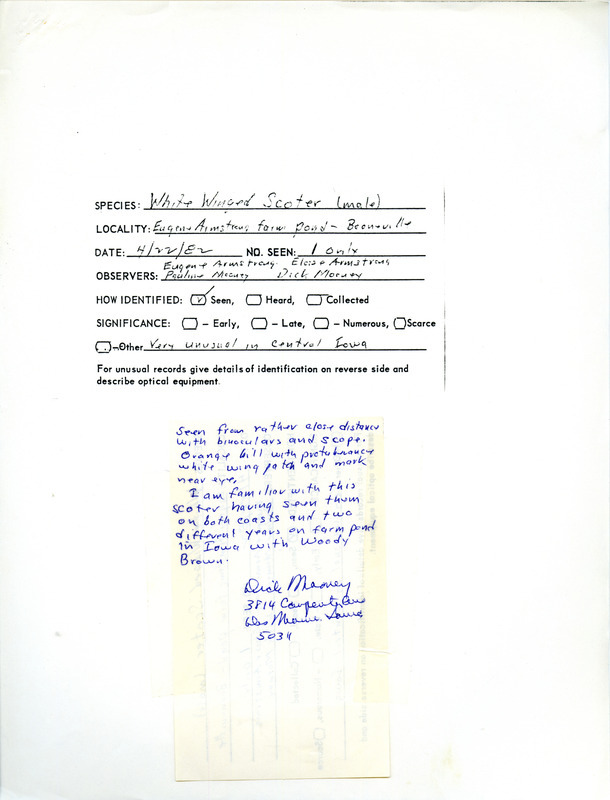 SPECIES: White Winged Scoter (male)
LOCALITY: Eugene Armstrong farm pond - Booneville
DATE: 4/22/82 NO. SEEN: 1 only
Eugene Armstrong. Eloise Armstrong
OBSERVERS: Pauline Mooney Dick Mooney
HOW IDENTIFIED: Seen, Heard, Collected
SIGNIFICANCE: - Early, - Late, - Numerous, Scarce
-Other Very unusual in central Iowa
For unusual records give details of identification on reverse side and
describe optical equipment.
Seen from rather close distance
with binoculars and scope.
Orange bill with protuberance
white wing patch and mark
near eye.
I am familiar with this
scoter having seen them
on both coasts and two
different years on farm pond
in Iowa with Woody
Brown.
Dick Mooney
3814 Carpenter Ave
Des Moines Iowa
50311